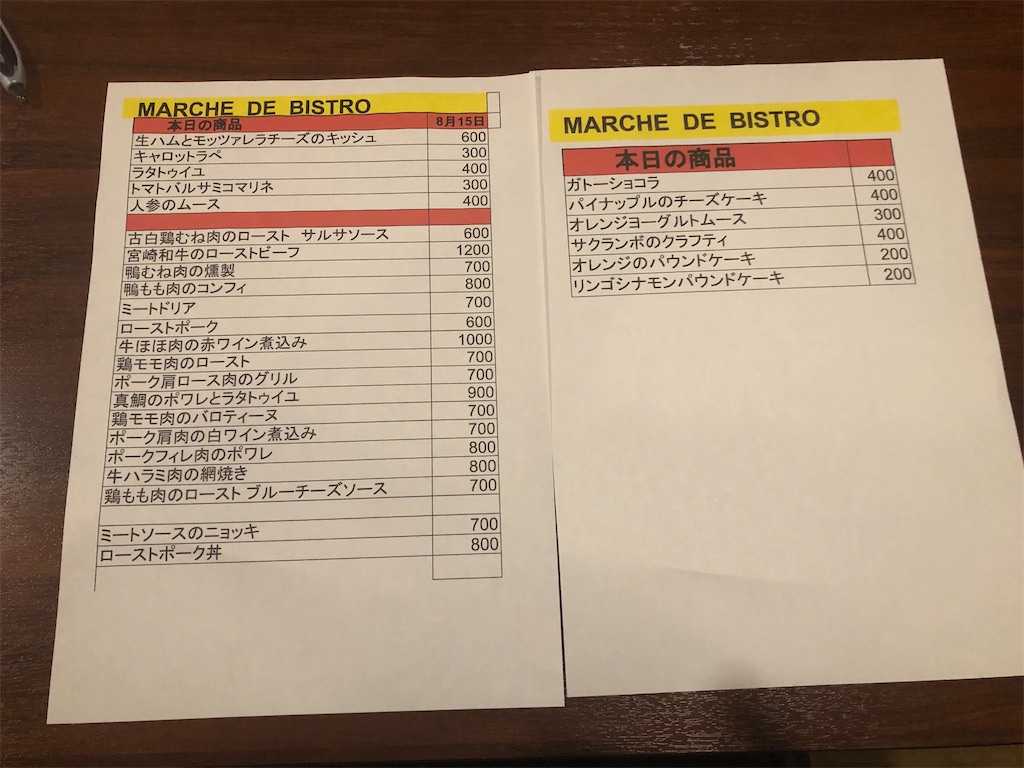 MARCHE DE BISTRO
本日の商品 8月15日
生ハムとモッツァレラチーズのキッシュ 600
キャロットラペ 300
ラタトゥイユ 400
トマトバルサミコマリネ 300
人参のムース 400
古白鶏むね肉のロースト サルサソース 600
宮崎和牛のローストビーフ 1200
鴨むね肉の燻製 700
鴨もも肉のコンフィ 800
ミートドリア 700
ローストポーク 600
牛ほほ肉の赤ワイン煮込み 1000
鶏モモ肉のロースト 700
ポーク肩ロース肉のグリル 700
真鯛のポワレとラタトゥイユ 900
鶏モモ肉のバロティーヌ 700
ポーク肩肉の白ワイン煮込み 700
ポークフィレ肉のポワレ 800
牛ハラミ肉の網焼き 800
鶏もも肉のロースト ブルーチーズソース 700
ミートソースのニョッキ 700
ローストポーク丼 800
MARCHE DE BISTRO
本日の商品
ガトーショコラ 400
パイナップルのチーズケーキ 400
オレンジヨーグルトムース 300
サクランボのクラフティ 400
オレンジのパウンドケーキ 200
リンゴシナモンパウンドケーキ 200